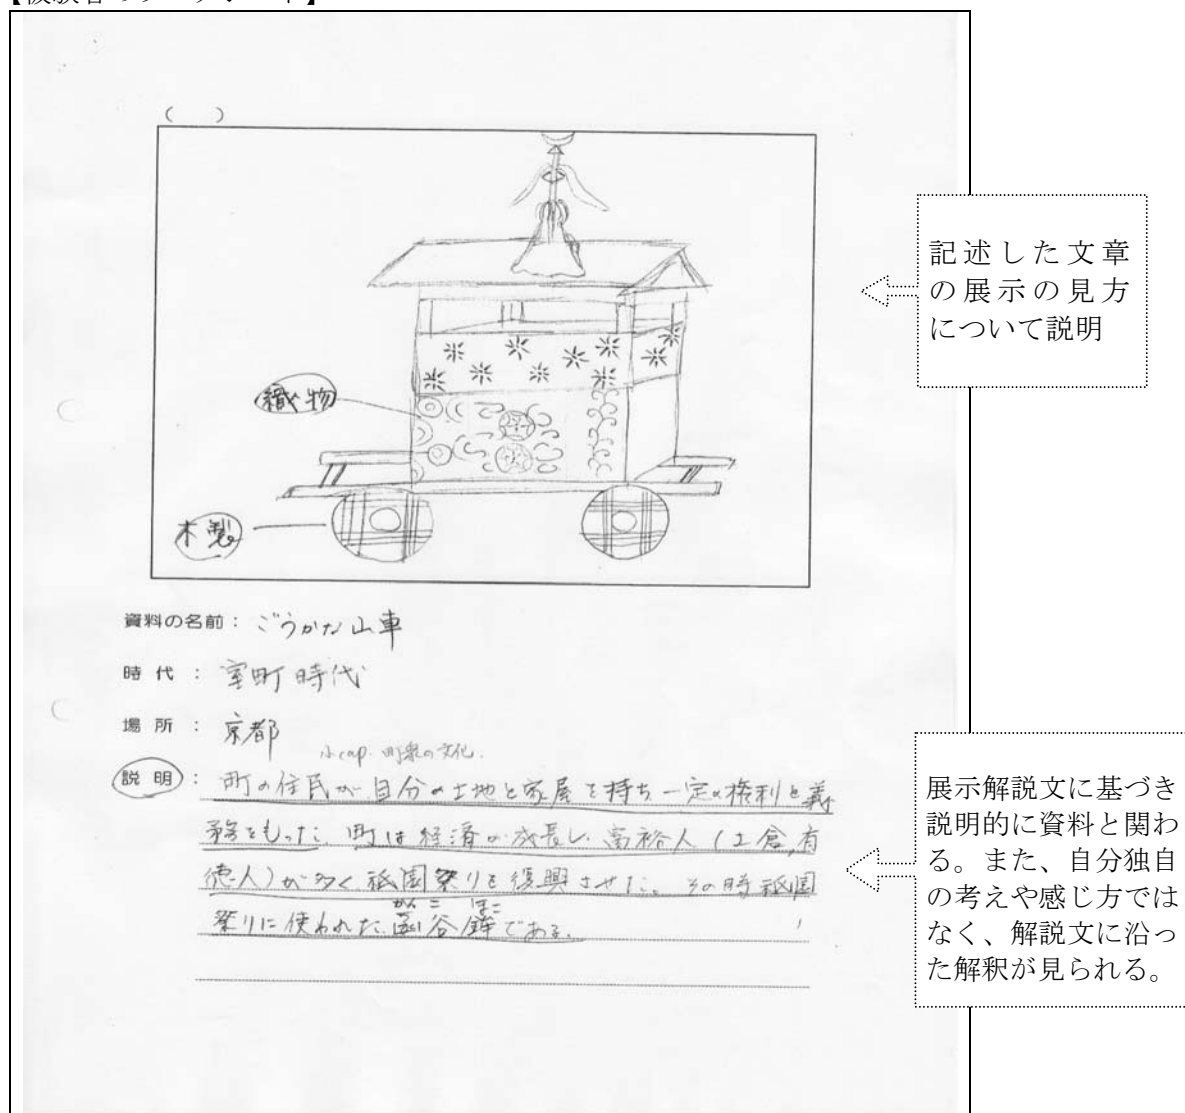 【被験者のワークシート】
(　　)
織物
木製
資料の名前：ごうかな山車
時代：室町時代
場所：京都
小cap. 町衆の文化.
説明：町の住民が自分の土地と家屋を持ち一定の権利と義
務をもった。町は経済が成長し、富裕人(土倉,有
徳人)が多く祇園祭りを復興させた。その時祇園
祭りに使われた函谷鉾である。
かんこ ほこ
記述した文章
の展示の見方
について説明
展示解説文に基づき
説明的に資料と関わ
る。また、自分独自
の考えや感じ方では
なく、解説文に沿っ
た解釈が見られる。